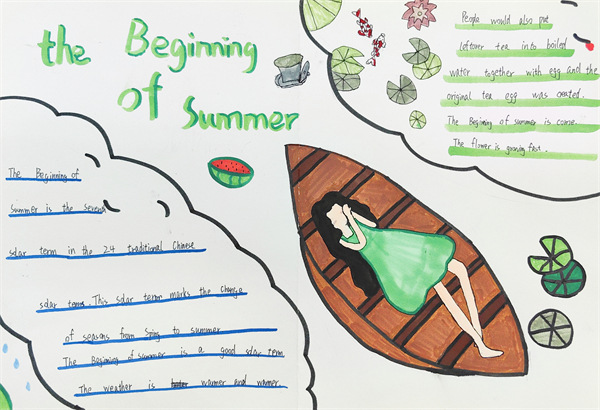 the Beginning
of Summer
People would also put
leftover tea into boiled
water together with egg and the
original tea egg was created.
The Begining of summer is come.
The flower is growing fast.
The Beginning of
Summer is the seventh
solar term in the 24 traditional Chinese
solar terms. This solar term marks the change
of seasons from Spring to summer
The Beginning of summer is a good solar term
The weather is warmer and warmer